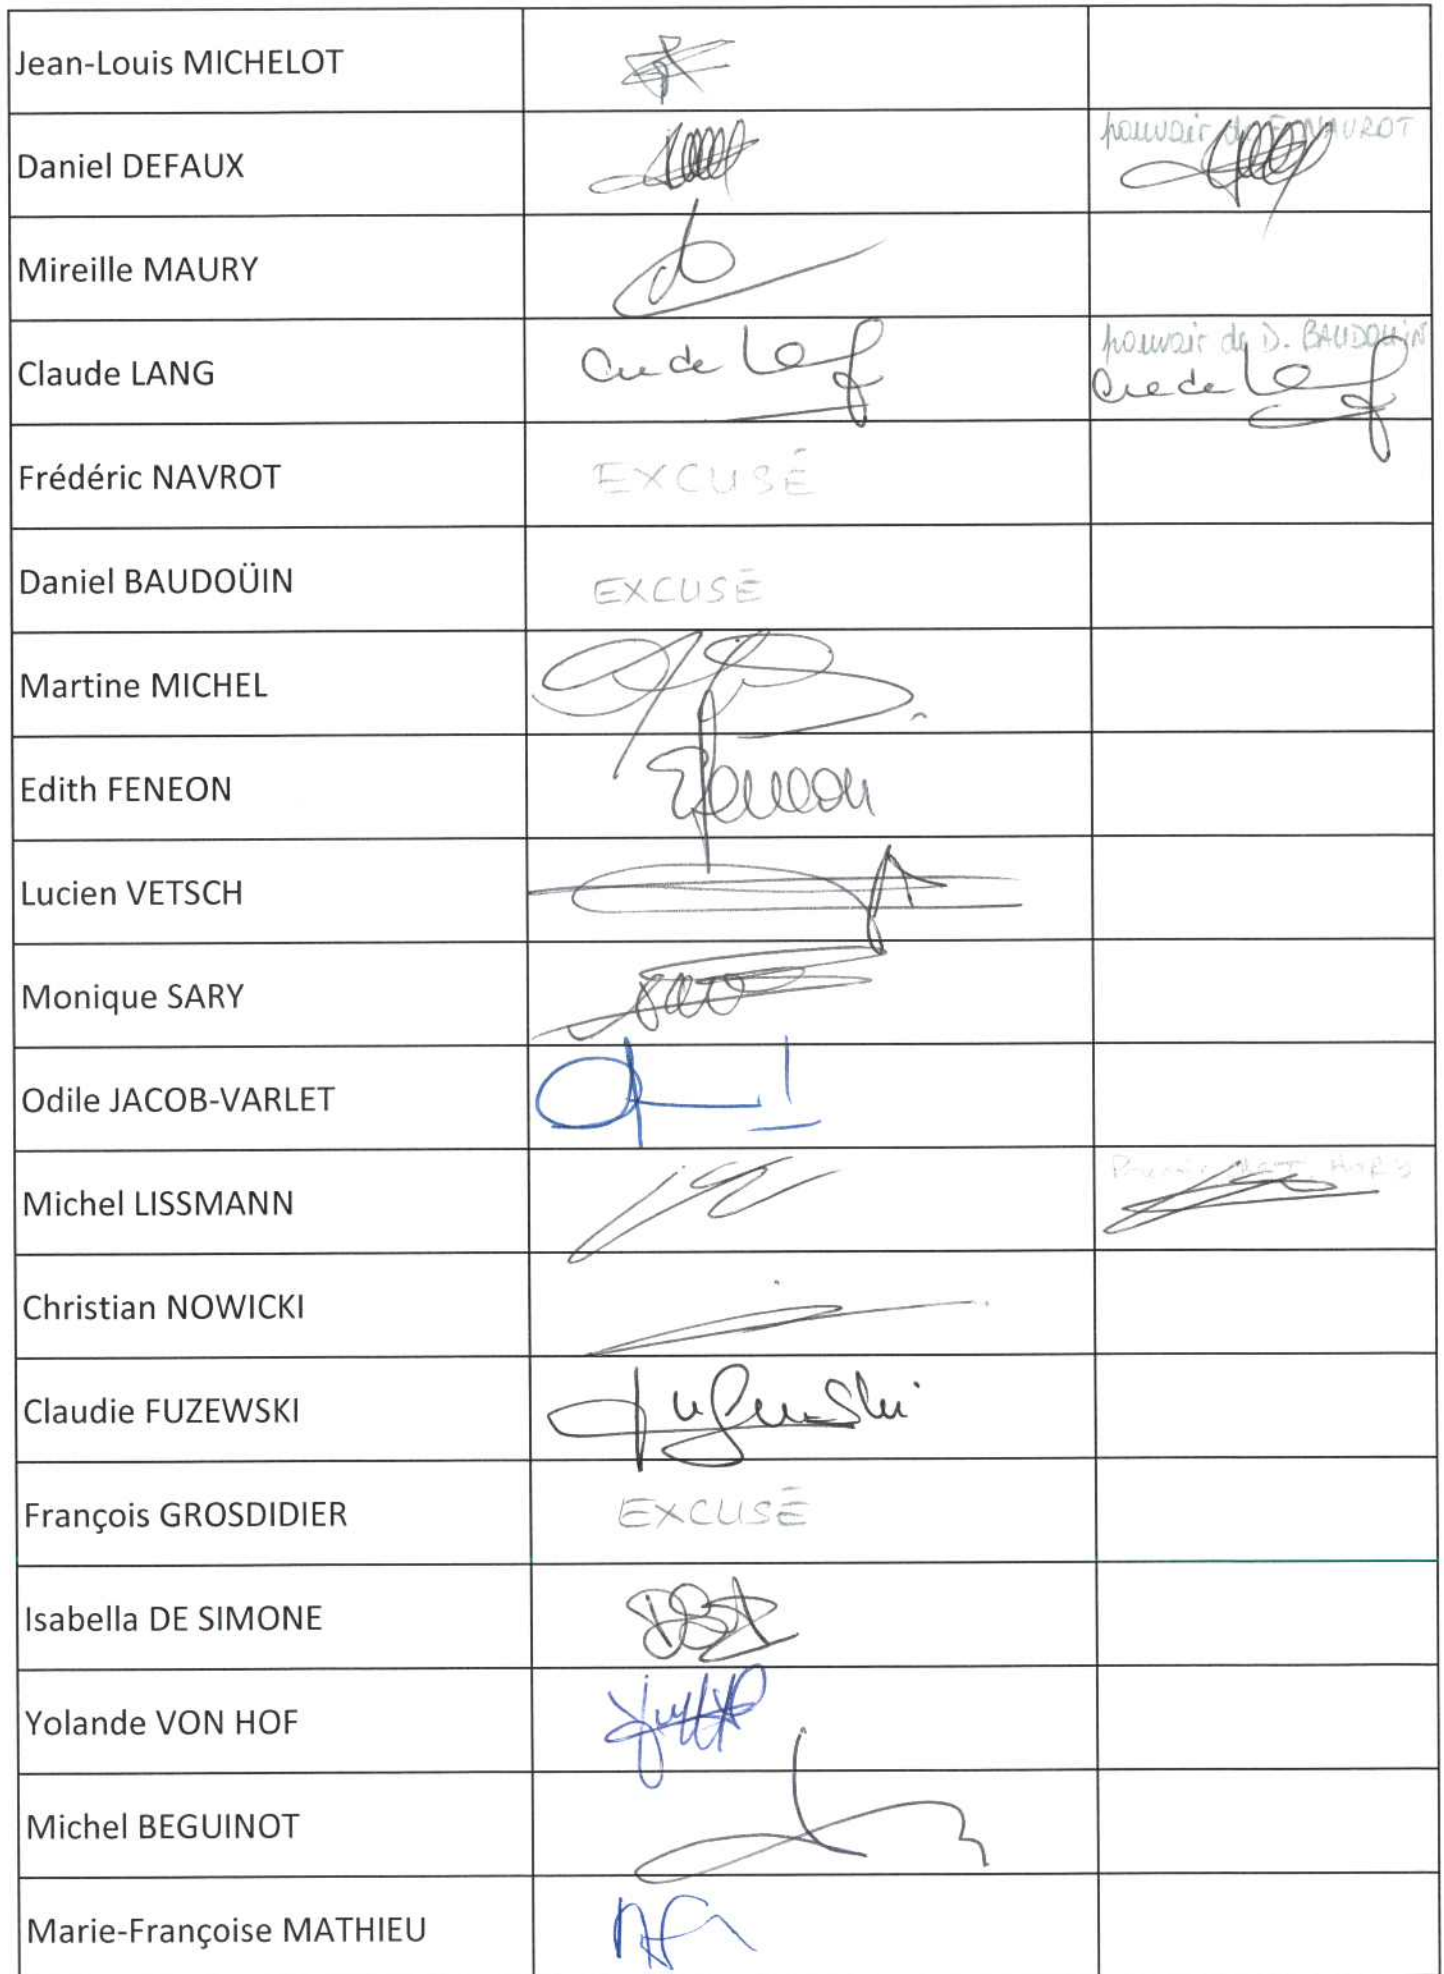 Jean-Louis MICHELOT
Daniel DEFAUX
pouvoir de F. NAVROT
Mireille MAURY
Claude LANG
Claude Lang
pouvoir de D. BAUDOUIN
Claude Lang
Frédéric NAVROT
EXCUSÉ
Daniel BAUDOÜIN
EXCUSÉ
Martine MICHEL
Edith FENEON
EFeneon
Lucien VETSCH
Monique SARY
Odile JACOB-VARLET
Michel LISSMANN
Christian NOWICKI
Claudie FUZEWSKI
Fuzewski
François GROSDIDIER
EXCUSÉ
Isabella DE SIMONE
Yolande VON HOF
Michel BEGUINOT
Marie-Françoise MATHIEU